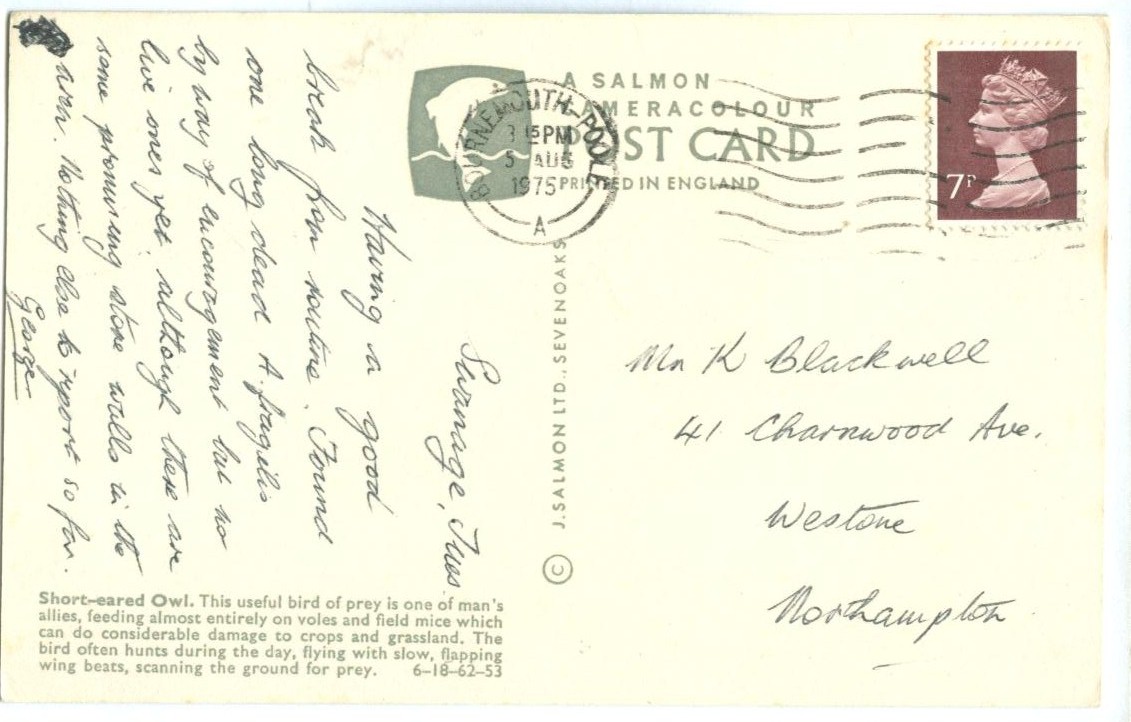 A SALMON
CAMERACOLOUR
POST CARD
PRINTED IN ENGLAND
BOURNEMOUTH-POOLE
3 15 PM
5 AUG
1975
A
7P
Swanage, Tues.
Having a good
break from routine. Found
one long dead A. fragilis
by way of encouragement but no
live ones yet, although there are
some promising stone walls in the
area. Nothing else to report so far.
George
© J. SALMON LTD., SEVENOAKS
Mr K Blackwell
41 Charnwood Ave.
Westone
Northampton
Short-eared Owl. This useful bird of prey is one of man's
allies, feeding almost entirely on voles and field mice which
can do considerable damage to crops and grassland. The
bird often hunts during the day, flying with slow, flapping
wing beats, scanning the ground for prey. 6-18-62-53